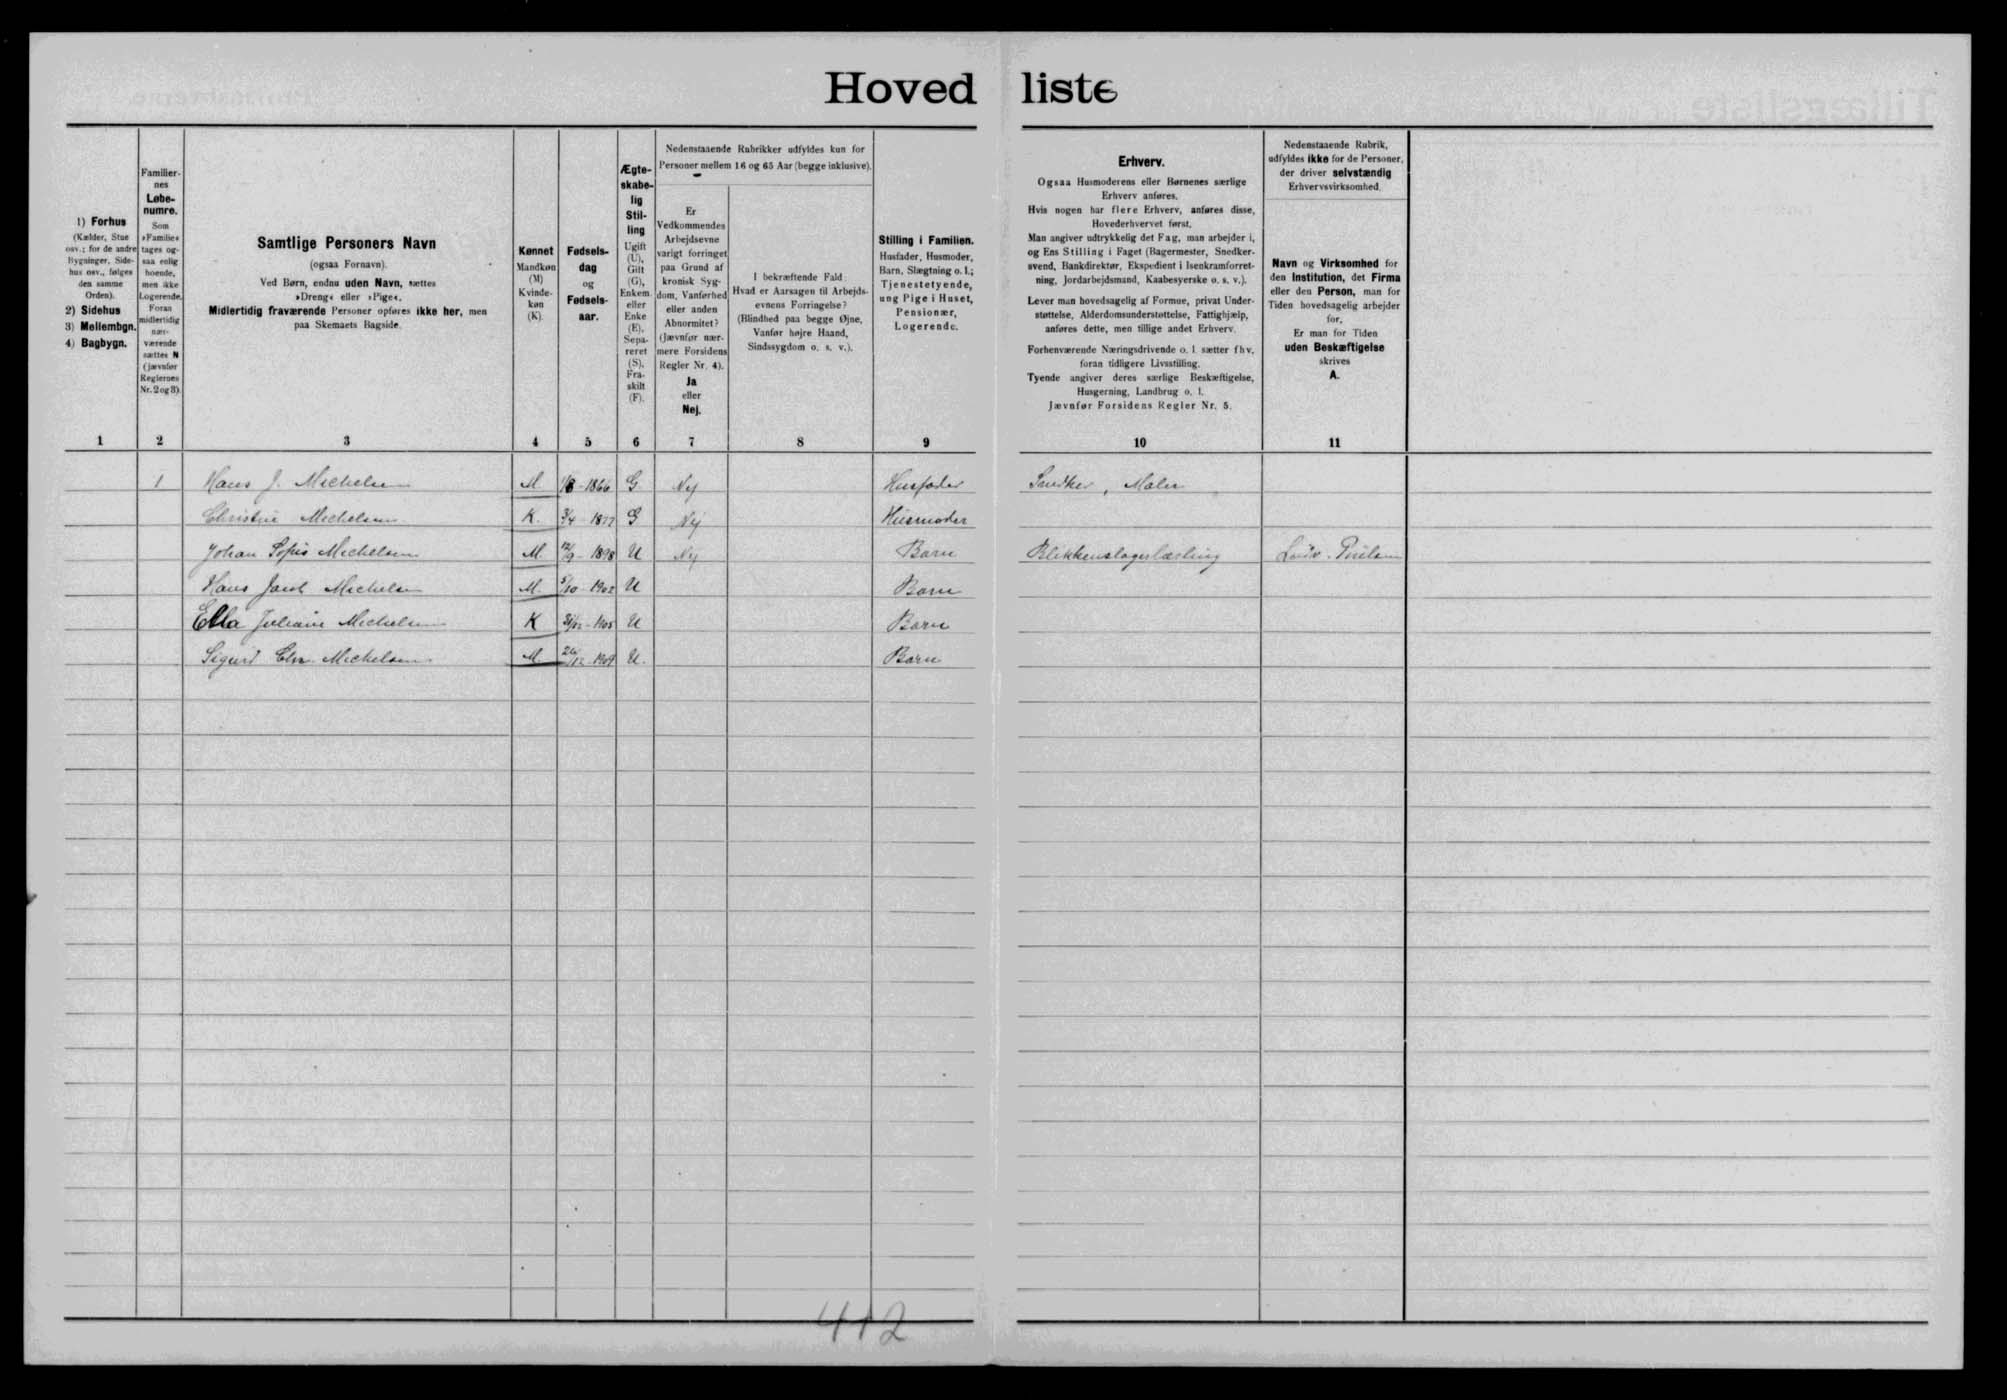 Hovedliste
1) Forhus
(Kælder, Stue
osv.; for de andre
Bygninger, Side-
hus osv., følges
den samme
Orden).
2) Sidehus
3) Mellembgn.
4) Bagbygn.
Familier-
nes
Løbe-
numre.
Som
»Familie«
tages og-
saa enlig
boende,
men ikke
Logerende.
Foran
midlertidig
nær-
værende
sættes N
(jævnfør
Reglernes
Nr. 2 og 3).
Samtlige Personers Navn
(ogsaa Fornavn).
Ved Børn, endnu uden Navn, sættes
»Dreng« eller »Pige«.
Midlertidig fraværende Personer opføres ikke her, men
paa Skemaets Bagside.
Kønnet
Mandkøn
(M)
Kvinde-
køn
(K).
Fødsels-
dag
og
Fødsels-
aar.
Ægte-
skabe-
lig
Stil-
ling
Ugift
(U),
Gift
(G),
Enkem.
eller
Enke
(E),
Sepa-
reret
(S),
Fra-
skilt
(F).
Nedenstaaende Rubrikker udfyldes kun for
Personer mellem 16 og 65 Aar (begge inklusive).
Er
Vedkommendes
Arbejdsevne
varigt forringet
paa Grund af
kronisk Syg-
dom, Vanførhed
eller anden
Abnormitet?
(Jævnfør nær-
mere Forsidens
Regler Nr. 4).
Ja
eller
Nej.
I bekræftende Fald:
Hvad er Aarsagen til Arbejds-
evnens Forringelse?
(Blindhed paa begge Øjne,
Vanfør højre Haand,
Sindssygdom o. s. v.).
Stilling i Familien.
Husfader, Husmoder,
Barn, Slægtning o. l.;
Tjenestetyende,
ung Pige i Huset,
Pensionær,
Logerende.
Erhverv.
Ogsaa Husmoderens eller Børnenes særlige
Erhverv anføres.
Hvis nogen har flere Erhverv, anføres disse,
Hovederhvervet først.
Man angiver udtrykkelig det Fag, man arbejder i,
og Ens Stilling i Faget (Bagermester, Snedker-
svend, Bankdirektør, Ekspedient i Isenkramforret-
ning, Jordarbejdsmand, Kaabesyerske o. s. v.).
Lever man hovedsagelig af Formue, privat Under-
støttelse, Alderdomsunderstøttelse, Fattighjælp,
anføres dette, men tillige andet Erhverv.
Forhenværende Næringsdrivende o. l. sætter fhv.
foran tidligere Livsstilling.
Tyende angiver deres særlige Beskæftigelse,
Husgerning, Landbrug o. l.
Jævnfør Forsidens Regler Nr. 5.
Nedenstaaende Rubrik,
udfyldes ikke for de Personer,
der driver selvstændig
Erhvervsvirksomhed.
Navn og Virksomhed for
den Institution, det Firma
eller den Person, man for
Tiden hovedsagelig arbejder
for,
Er man for Tiden
uden Beskæftigelse
skrives
A.
1 2 3 4 5 6 7 8 9 10 11
1 Hans J. Michelsen M 1/8-1866 G Nej Husfader Snedker, Maler
Christine Michelsen K. 3/4-1877 G Nej Husmoder
Johan Sofus Michelsen M. 12/9-1898 U Nej Barn Blikkenslagerlærling Ludv.
Hans Jacob Michelsen M. 5/10-1902 U Barn
Ella Juliane Michelsen K 31/12-1905 U Barn
Sigurd Chr. Michelsen M. 24/12-1909 U. Barn
412